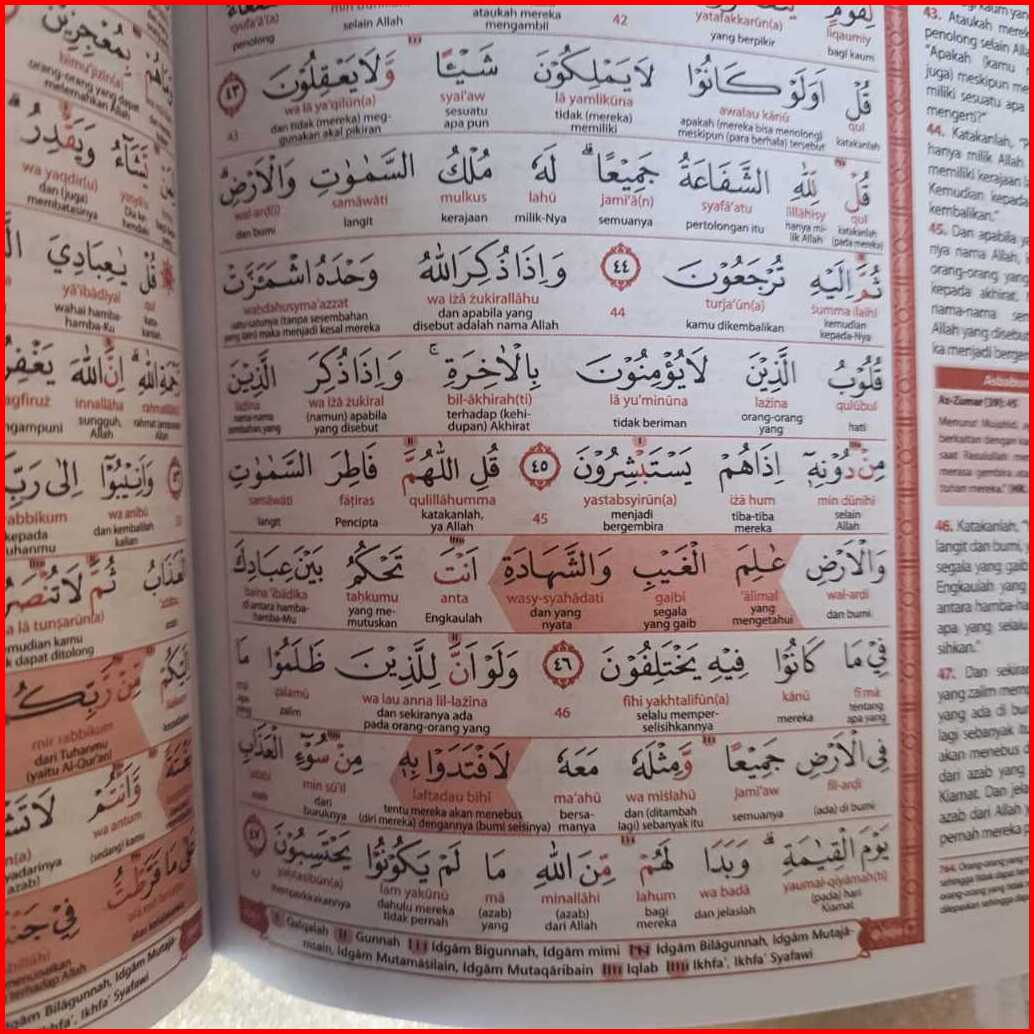 لِّقَوْمٍ
liqaumiy yatafakkarūn(a)
bagi kaum yang berpikir 42 ataukah mereka mengambil selain Allah penolong
قُلْ اَوَلَوْ كَانُوْا لَا يَمْلِكُوْنَ شَيْـًٔا وَّلَا يَعْقِلُوْنَ ٤٣
qul awalau kānū lā yamlikūna syai'aw wa lā ya'qilūn(a)
katakanlah apakah (mereka bisa menolong) meskipun (para berhala) tersebut tidak (mereka) memiliki sesuatu apa pun dan tidak (mereka) menggunakan akal pikiran 43
قُلْ لِّلّٰهِ الشَّفَاعَةُ جَمِيْعًا ۗ لَهٗ مُلْكُ السَّمٰوٰتِ وَالْاَرْضِۗ
qul lillāhisy syafā'atu jamī'ā(n) lahū mulkus samāwāti wal-arḍ(i)
katakanlah (pada mereka) hanya milik Allah pertolongan itu semuanya milik-Nya kerajaan langit dan bumi
ثُمَّ اِلَيْهِ تُرْجَعُوْنَ ٤٤ وَاِذَا ذُكِرَ اللّٰهُ وَحْدَهُ اشْمَـَٔزَّتْ
summa ilaihi turja'ūn(a) wa iżā żukirallāhu waḥdahusyma'azzat
kemudian kepada-Nya kamu dikembalikan 44 dan apabila yang disebut adalah nama Allah satu-satunya (tanpa sesembahan yang lain) maka menjadi kesal mereka
قُلُوْبُ الَّذِيْنَ لَا يُؤْمِنُوْنَ بِالْاٰخِرَةِۚ وَاِذَا ذُكِرَ الَّذِيْنَ
qulūbul lażīna lā yu'minūna bil-ākhirah(ti) wa iżā żukiral lażīna
hati orang-orang yang tidak beriman terhadap (kehidupan) Akhirat (namun) apabila yang disebut nama-nama sembahan yang
مِنْ دُوْنِهٖٓ اِذَا هُمْ يَسْتَبْشِرُوْنَ ٤٥ قُلِ اللّٰهُمَّ فَاطِرَ السَّمٰوٰتِ
min dūnihī iżā hum yastabsyirūn(a) qulillāhumma fāṭiras samāwāti
selain Allah tiba-tiba mereka menjadi bergembira 45 katakanlah, ya Allah Pencipta langit
وَالْاَرْضِ عٰلِمَ الْغَيْبِ وَالشَّهَادَةِ اَنْتَ تَحْكُمُ بَيْنَ عِبَادِكَ
wal-arḍi 'ālimal gaibi wasy-syahādati anta taḥkumu baina 'ibādika
dan bumi yang mengetahui segala yang gaib dan yang nyata Engkaulah yang memutuskan di antara hamba-hamba-Mu
فِيْ مَا كَانُوْا فِيْهِ يَخْتَلِفُوْنَ ٤٦ وَلَوْ اَنَّ لِلَّذِيْنَ ظَلَمُوْا مَا
fī mā kānū fīhi yakhtalifūn(a) wa lau anna lil-lażīna ẓalamū mā
tentang apa yang mereka selalu memperselisihkannya 46 dan sekiranya ada pada orang-orang yang zalim apa yang
فِى الْاَرْضِ جَمِيْعًا وَّمِثْلَهٗ مَعَهٗ لَافْتَدَوْا بِهٖ مِنْ سُوْۤءِ الْعَذَابِ
fil-arḍi jamī'aw wa miślahu ma'ahū laftadau bihī min sū'il
(ada) di bumi semuanya dan (ditambah lagi) sebanyak itu bersamanya tentu mereka akan menebus (diri mereka) dengannya (bumi seisinya) dari buruknya
يَوْمَ الْقِيٰمَةِۗ وَبَدَا لَهُمْ مِّنَ اللّٰهِ مَا لَمْ يَكُوْنُوْا يَحْتَسِبُوْنَ ٤٧
yaumal-qiyāmah(ti) wa badā lahum minallāhi mā lam yakūnū yaḥtasibūn(a)
(pada) hari Kiamat dan jelaslah bagi mereka (azab) dari Allah (azab) yang dahulu mereka tidak pernah memperkirakannya
Qalqalah Gunnah Idgām Bigunnah, Idgām mimi Idgām Bilāgunnah, Idgām Mutajānisain, Idgām Mutamāsilain, Idgām Mutaqāribain Iqlab Ikhfa', Ikhfa' Syafawi
43. Ataukah
penolong selain
"Apakah (kamu
juga) meskipun
miliki sesuatu apa
mengerti?"
44. Katakanlah,
hanya milik Allah
memiliki kerajaan
Kemudian kepada
kembalikan."
45. Dan apabila
nya nama Allah,
orang-orang yang
kepada akhirat.
nama-nama
Allah yang disebut
ka menjadi
Az-Zumar (39): 45
46. Katakanlah,
langit dan bumi,
segala yang gaib
Engkaulah yang
antara hamba-
apa yang
sihkan."
47. Dan
yang zalim
yang ada di
lagi sebanyak
akan menebus
dari azab yang
Kiamat. Dan
azab dari Allah
pernah mereka
بِمُعْجِزِيْنَ
bimu'jizīn(a)
orang-orang yang dapat melemahkan Allah
يَّشَاۤءُ وَيَقْدِرُ
wa yaqdir(u)
dan (juga) membatasinya
قُلْ يٰعِبَادِيَ
qul yā'ibādiyal
katakanlah wahai hamba-hamba-Ku
اِنَّ اللّٰهَ يَغْفِرُ
innallāha
sungguh, Allah
وَاَنِيْبُوْٓا اِلٰى
wa anību
dan kembalilah kalian
ثُمَّ لَا
lā tunṣarūn(a)
kemudian kamu
dapat ditolong
مِّنْ رَّبِّكُمْ
mir rabbikum
dari Tuhanmu
(yaitu Al-Qur'an)
وَّاَنْتُمْ لَا
wa antum
(sedang) kamu
عَلٰى مَا فَرَّطْتُّ فِيْ
Idgām Bilāgunnah, Idgām
Ikhfa' Syafawi